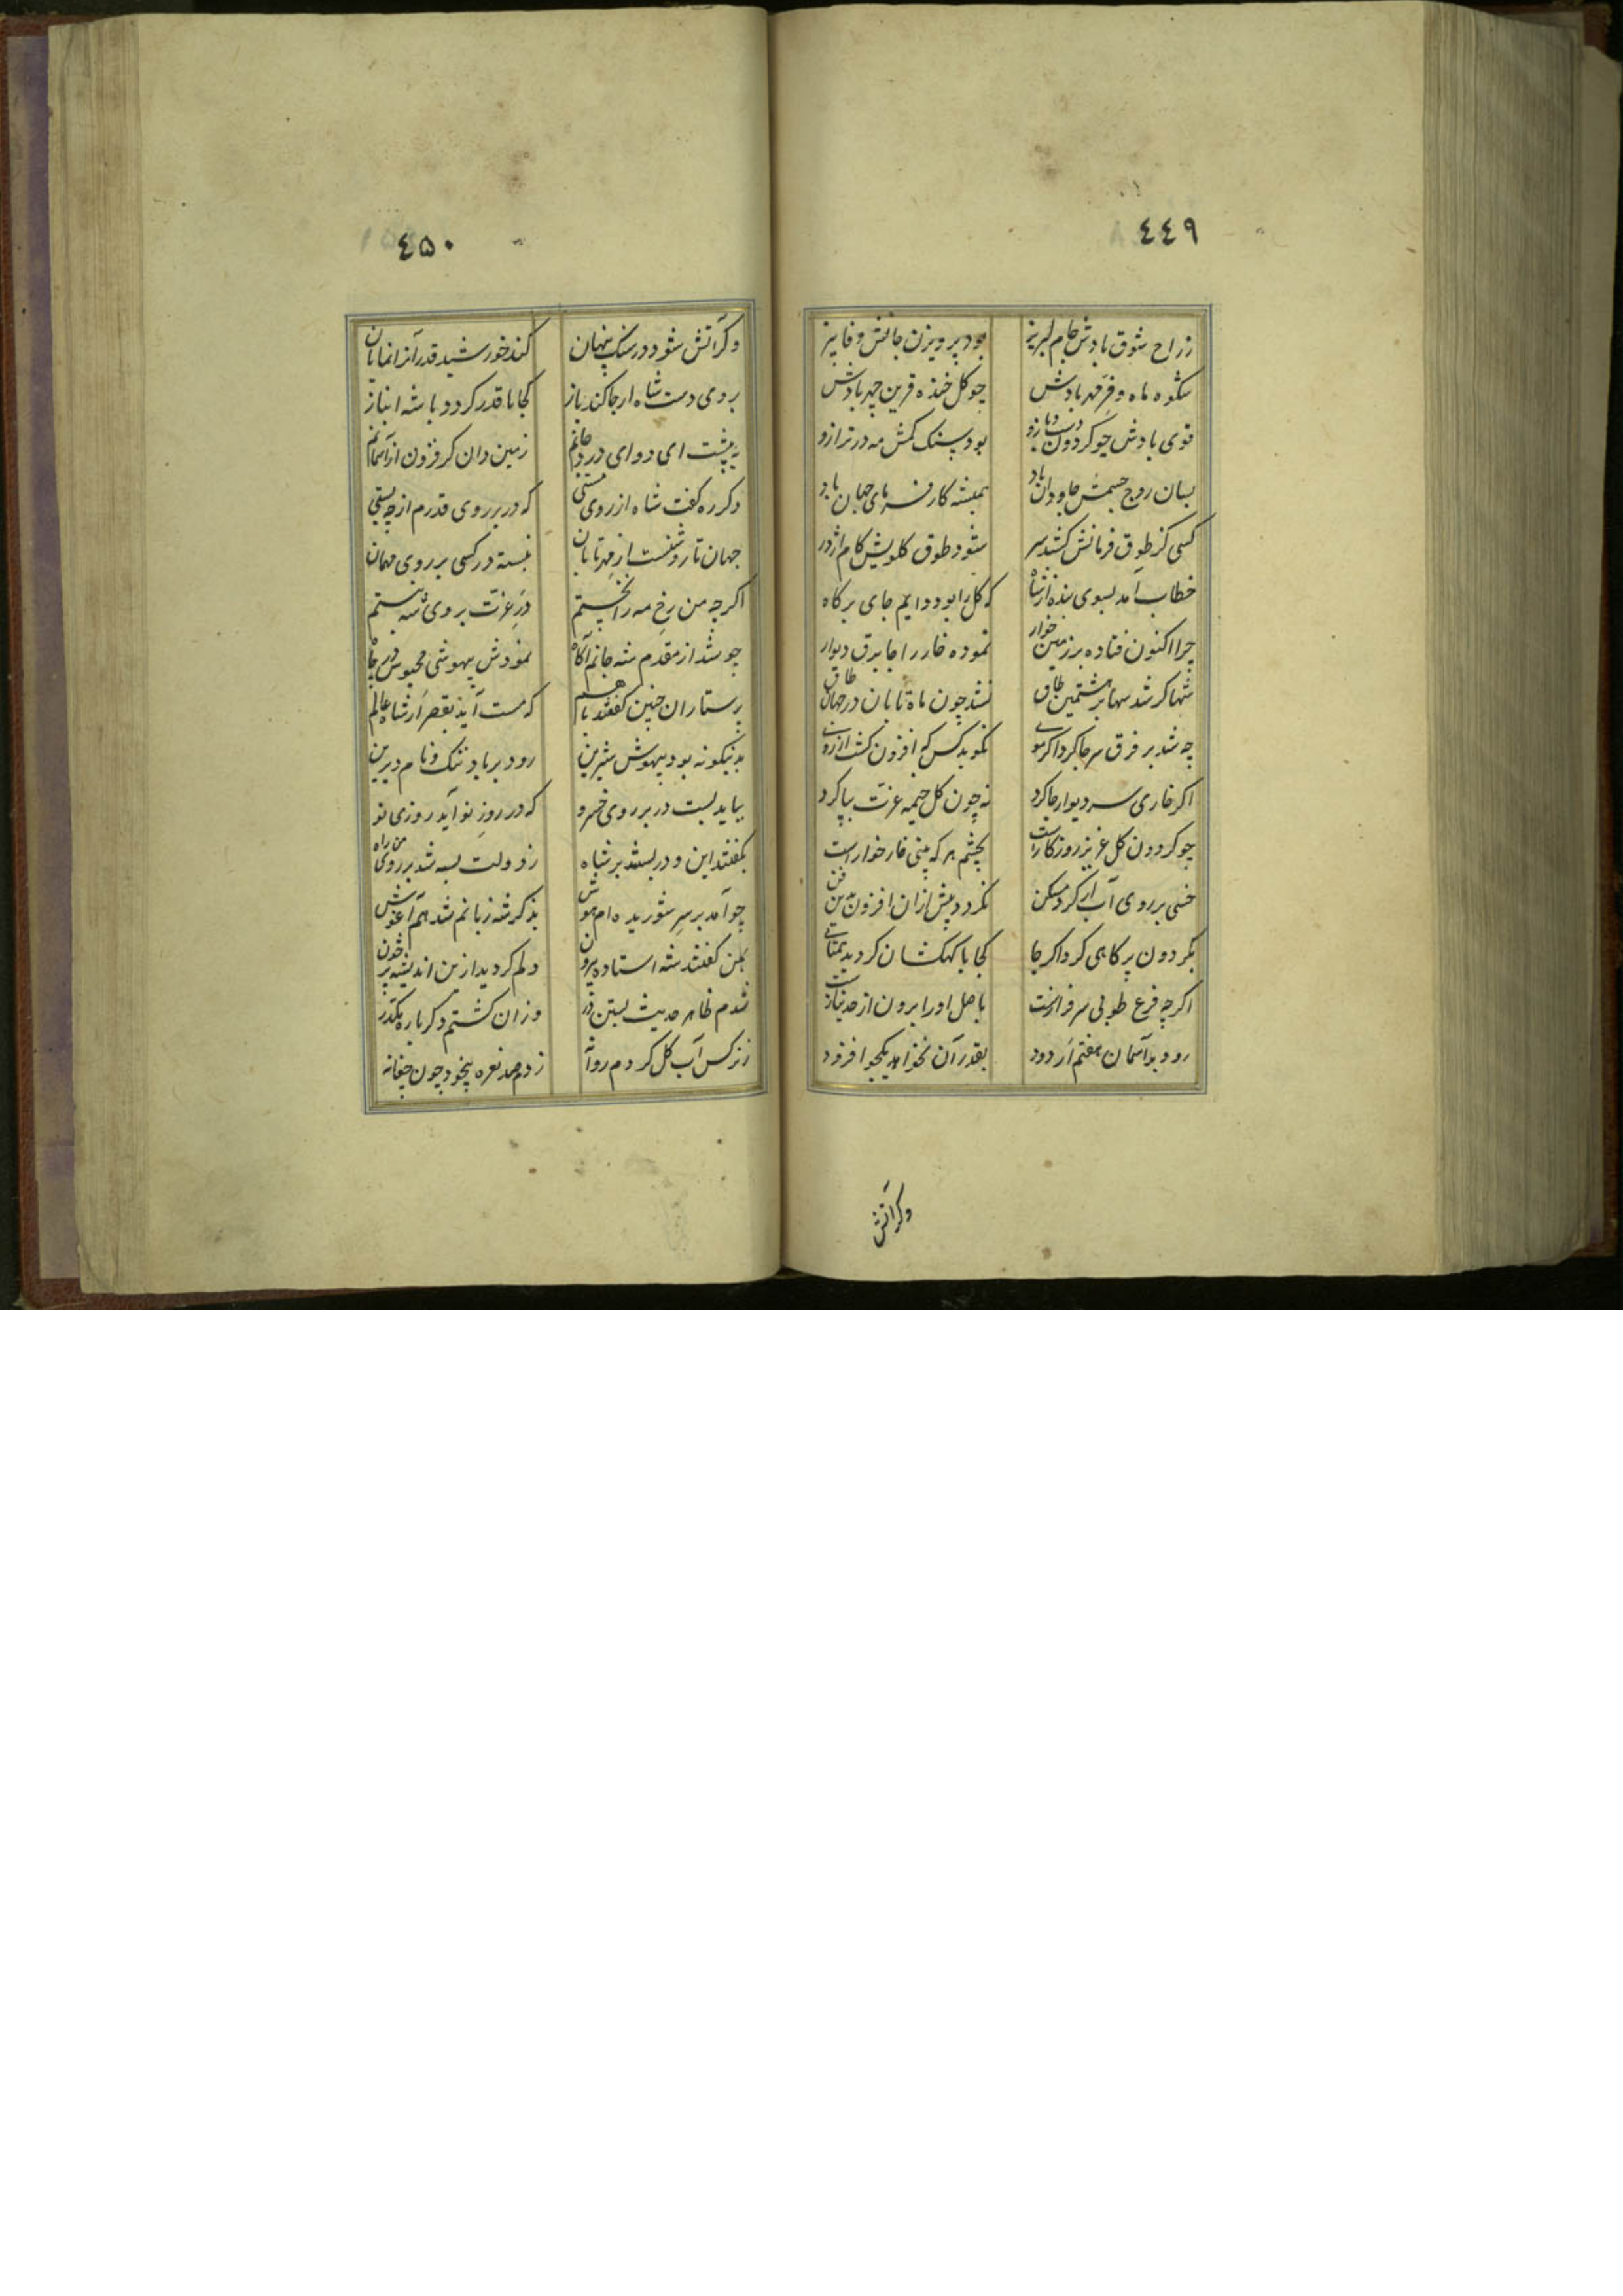 ٤٤٩
زراح شوق بادش جام لبریز بود پرویزن جانش وفا بیز
شکوه ماه و فر مهر بادش چو کل خنده قرین چهر بادش
قوی بادش چو کردون دست و بازو بود سنک کمش مه در ترازو
بسان روح جسمش جاودان باد همیشه کارفرمای جهان باد
کسی کز طوق فرمانش کشد سر شود طوق کلویش کام اژدر
خطاب آمد بسوی بنده از شاه که کل را بود دایم جای بر کاه
چرا اکنون فتاده بر زمین خوار نموده خار را جا برق دیوار
شها کر شد سها بر هشتمین طاق نشد چون ماه تابان در جهان طاق
چه شد بر فرق سر جا کرد اکر موی نکوید کس که افزون کشت از روی
اکر خاری سر دیوار جا کرد نه چون کل خیمه عزت بپا کرد
چو کردون کل عزیز روزکار است بچشم هر که بینی خار خوار است
خسی بر روی آب ار کرد مسکن نکردد بیش ازان افزون بدین فن
بکردون پر کاهی کرد اکر جا کجا با کهکشان کردید همتای
اکر چه فرع طوبی سرفرازست باصل او را برون از حد نیازست
رود بر آسمان هفتم ار دود بقدر آن نخواهد یکجو افزود
وکر آتش
٤۵۰
وکر آتش شود در سنک پنهان کند خورشید قدر آنرا نمایان
بروی دست شاه ار جا کند باز کجا با قدر کردد با شه انباز
به پیشت ای دوای درد جانم زمین دان کر فزون از آسمانم
دکر ره کفت شاه از روی مستی که در بر روی قدرم از چه بستی
جهان تا روشنست از مهر تابان نبسته در کسی بر روی مهمان
اکر چه من رخ مه را نخستم در عزت بروی شه نبستم
چو شد از مقدم شه جانم آکاه نمودش بیهوشی محبوس در چاه
پرستاران چنین کفتند با هم که مست آید بقصر ار شاه عالم
بدینکونه بود بیهوش شیرین رود بر باد ننک و نام دیرین
بباید بست در بر روی خسرو که در روز نو آید روزی نو
بکفتند این و در بستند بر شاه ز دولت بسته شد بر روی من راه
چو آمد بر سر شوریده ام هوش بذکر شه زبانم شد هم آغوش
بمن کفتند شه استاده بیرون دلم کردید ازین اندیشه پر خون
شدم ظاهر حدیث بستن در وزان کشتم دکر باره مکدر
ز نرکس آب کل کردم روانه زدم صد نعره بیخود چون چغانه